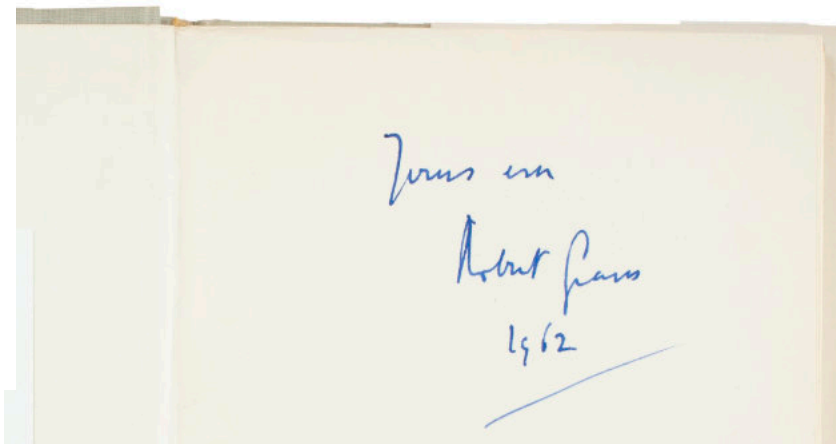 Yours ever
Robert Graves
1962